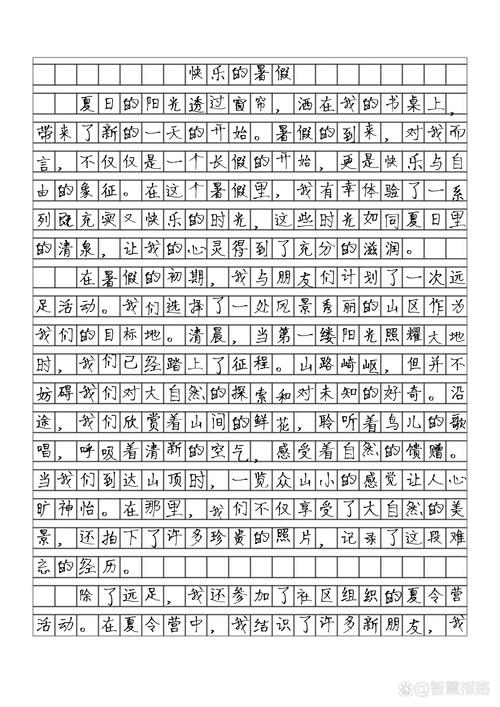 快乐的暑假
夏日的阳光透过窗帘，洒在我的书桌上，
带来了新的一天的开始。暑假的到来，对我而
言，不仅仅是一个长假的开始，更是快乐与自
由的象征。在这个暑假里，我有幸体验了一系
列既充实又快乐的时光，这些时光如同夏日里
的清泉，让我的心灵得到了充分的滋润。
在暑假的初期，我与朋友们计划了一次远
足活动。我们选择了一处风景秀丽的山区作为
我们的目标地。清晨，当第一缕阳光照耀大地
时，我们已经踏上了征程。山路崎岖，但并不
妨碍我们对大自然的探索和对未知的好奇。沿
途，我们欣赏着山间的鲜花，聆听着鸟儿的歌
唱，呼吸着清新的空气，感受着自然的馈赠。
当我们到达山顶时，一览众山小的感觉让人心
旷神怡。在那里，我们不仅享受了大自然的美
景，还拍下了许多珍贵的照片，记录了这段难
忘的经历。
除了远足，我还参加了社区组织的夏令营
活动。在夏令营中，我结识了许多新朋友，我
智慧指路